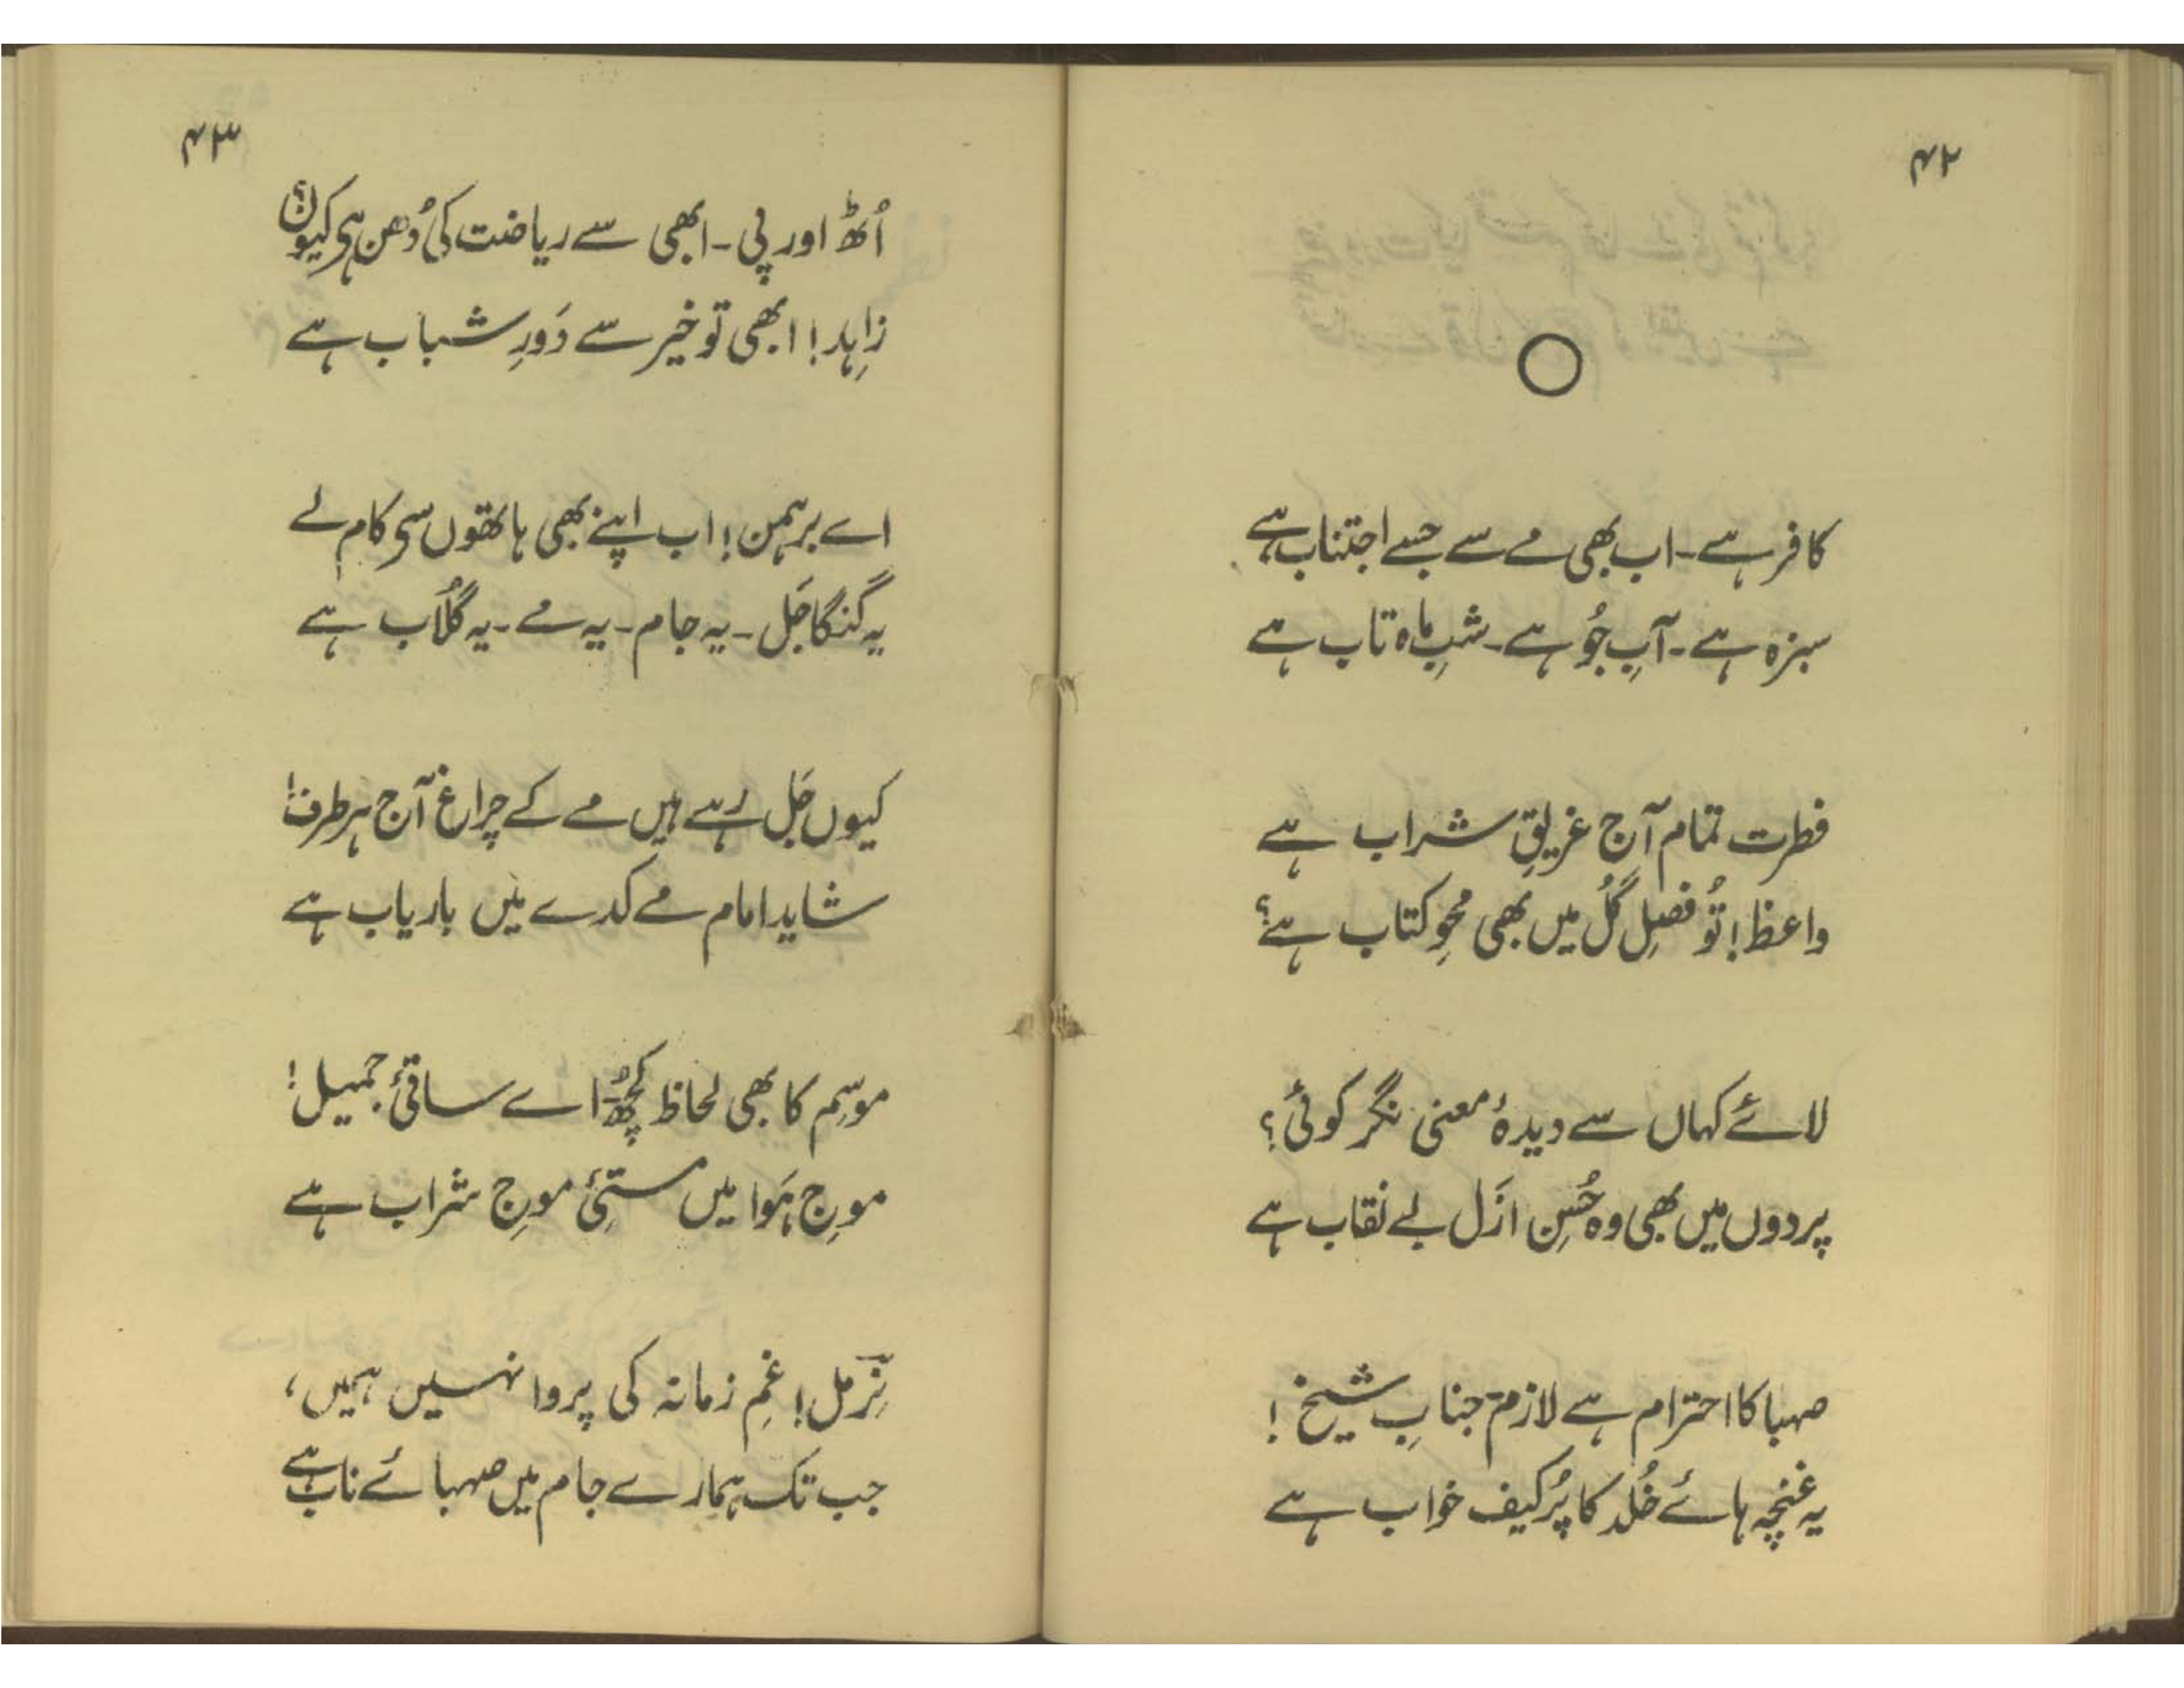 ۴۲
کافر ہے۔ اب بھی مے سے جسے اجتناب ہے
سبزہ ہے۔ آبِ جُو ہے۔ شبِ ماہ تاب ہے
فطرت تمام آج غریقِ شراب ہے
واعظ! تُو فصلِ گُل میں بھی محوِ کتاب ہے؟
لائے کہاں سے دیدۂ معنی نگر کوئی؟
پردوں میں بھی وہ حُسنِ ازَل بے نقاب ہے
صہبا کا احترام ہے لازم جنابِ شیخ!
یہ غنچہ ہائے خُلد کا پُرکیف خواب ہے
۴۳
اُٹھ اور پی۔ ابھی سے ریاضت کی دُھن ہی کیوں؟
زاہِد! ابھی تو خیر سے دَورِ شباب ہے
اے برہمن! اب اپنے بھی ہاتھوں سی کام لے
یہ گنگا جَل۔ یہ جام۔ یہ مے۔ یہ گُلاب ہے
کیوں جَل رہے ہیں مے کے چراغ آج ہر طرف!
شاید امام مے کدے میں باریاب ہے
موسِم کا بھی لحاظ کچھ اے ساقئ جمیل!
موجِ ہَوا میں مستئ موجِ شراب ہے
نِرمل! غمِ زمانہ کی پروا نہیں ہمیں،
جب تک ہمارے جام میں صہبائے ناب ہے